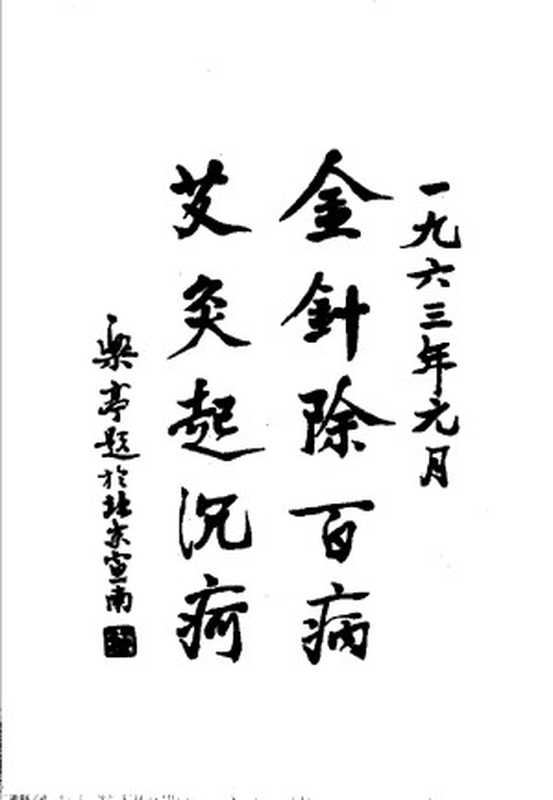 一九六三年元月
金針除百病
艾灸起沉疴
乐亭题於北京宣南